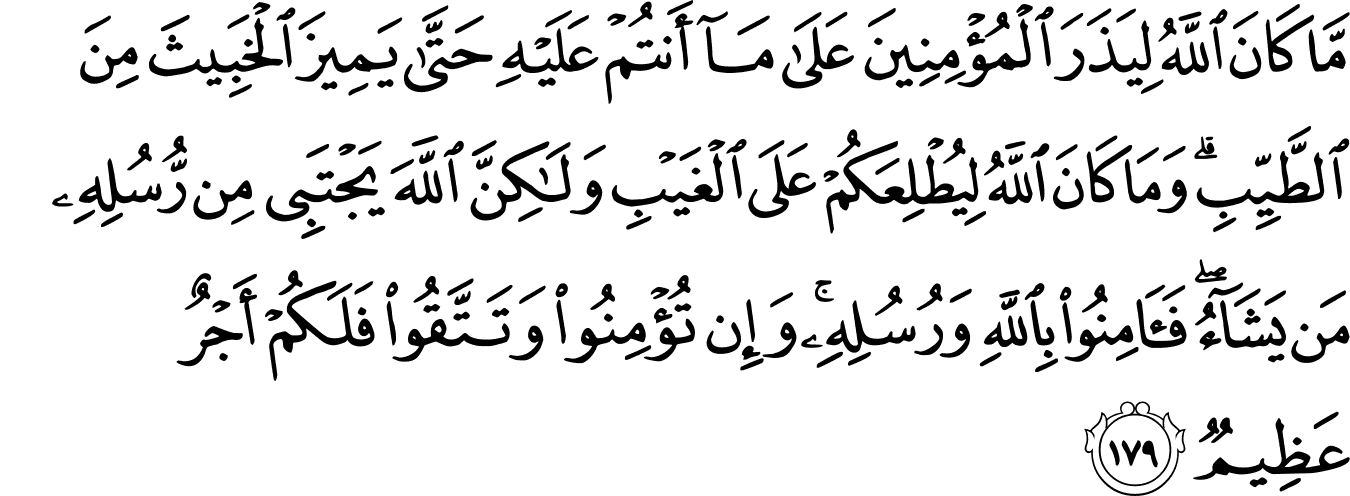 مَّا كَانَ ٱللَّهُ لِيَذَرَ ٱلْمُؤْمِنِينَ عَلَىٰ مَآ أَنتُمْ عَلَيْهِ حَتَّىٰ يَمِيزَ ٱلْخَبِيثَ مِنَ
ٱلطَّيِّبِ ۗ وَمَا كَانَ ٱللَّهُ لِيُطْلِعَكُمْ عَلَى ٱلْغَيْبِ وَلَـٰكِنَّ ٱللَّهَ يَجْتَبِى مِن رُّسُلِهِۦ
مَن يَشَآءُ ۖ فَـَٔامِنُوا۟ بِٱللَّهِ وَرُسُلِهِۦ ۚ وَإِن تُؤْمِنُوا۟ وَتَتَّقُوا۟ فَلَكُمْ أَجْرٌ
عَظِيمٌ ١٧٩